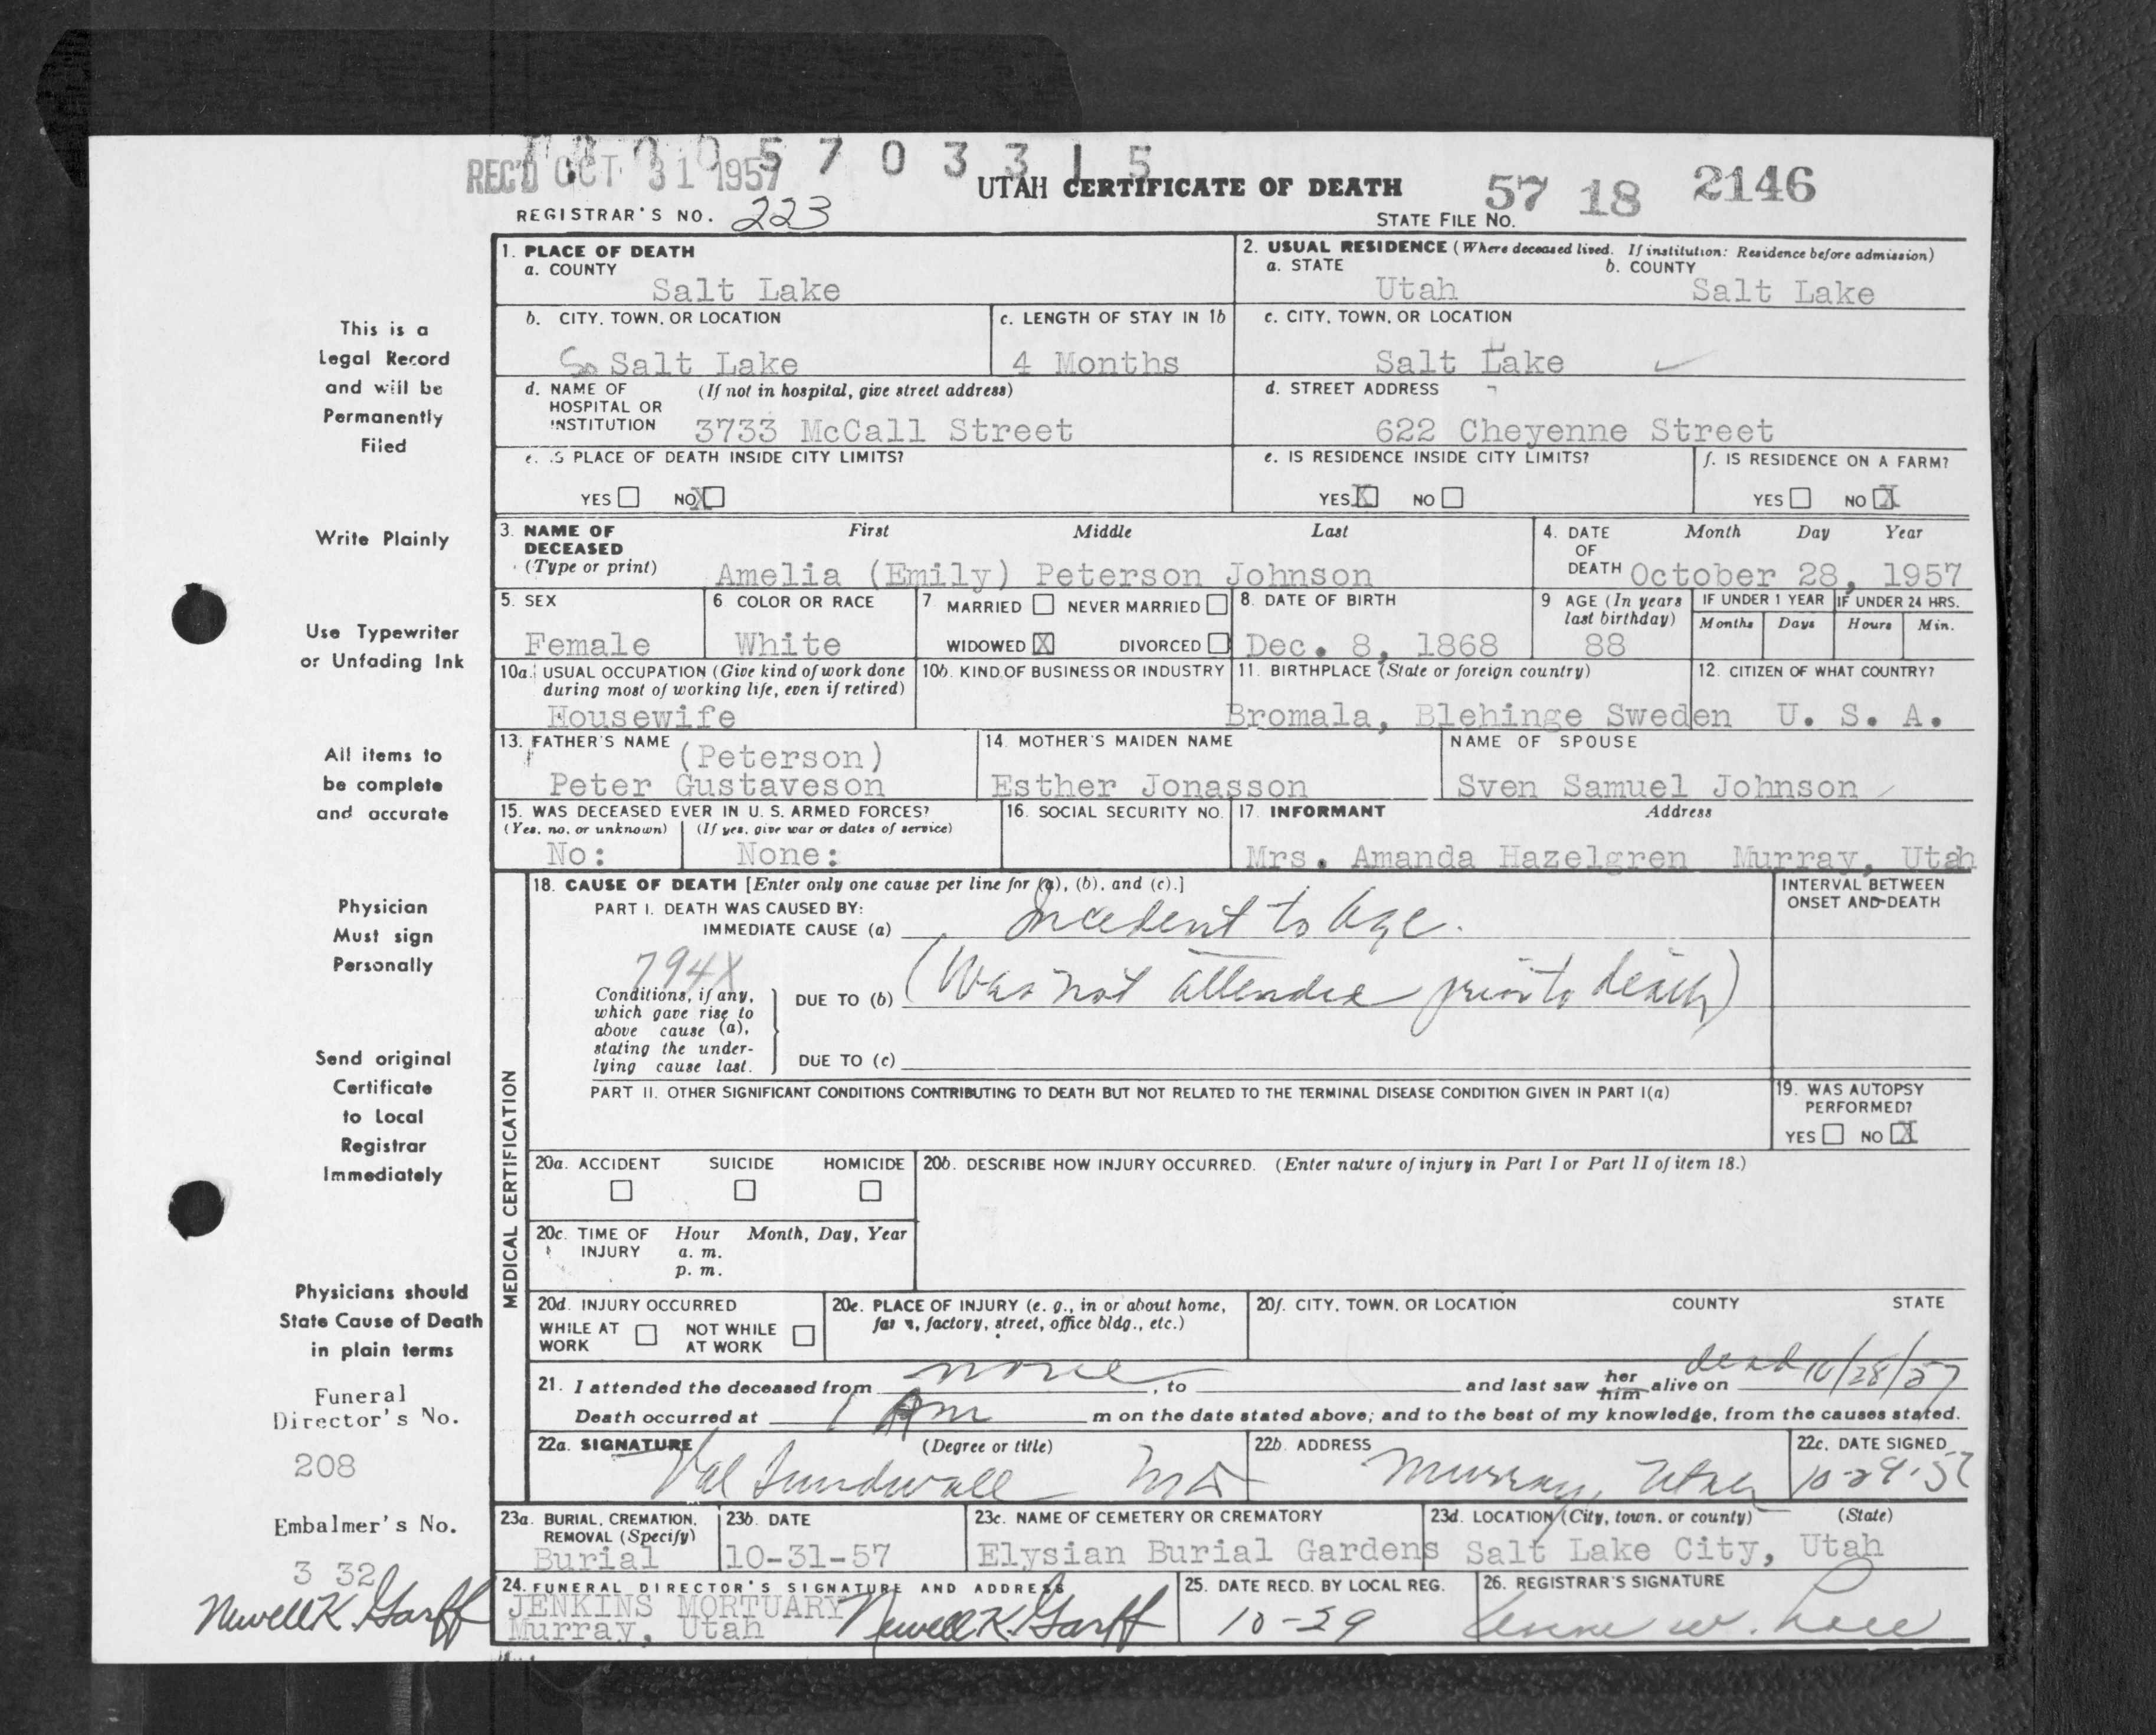 7 0 3 3 1 5
REC'D OCT 31 1957
UTAH CERTIFICATE OF DEATH
57 18 2146
REGISTRAR'S NO. 223
STATE FILE NO.
1. PLACE OF DEATH
a. COUNTY
Salt Lake
2. USUAL RESIDENCE (Where deceased lived. If institution: Residence before admission)
a. STATE
b. COUNTY
Utah
Salt Lake
b. CITY, TOWN, OR LOCATION
So Salt Lake
c. LENGTH OF STAY IN 1b
4 Months
c. CITY, TOWN, OR LOCATION
Salt Lake
d. NAME OF HOSPITAL OR INSTITUTION
(If not in hospital, give street address)
3733 McCall Street
d. STREET ADDRESS
622 Cheyenne Street
e. IS PLACE OF DEATH INSIDE CITY LIMITS?
YES NO X
e. IS RESIDENCE INSIDE CITY LIMITS?
YES X NO
f. IS RESIDENCE ON A FARM?
YES NO X
3. NAME OF
DECEASED
(Type or print)
First Middle Last
Amelia (Emily) Peterson Johnson
4. DATE
OF
DEATH
Month Day Year
October 28, 1957
5. SEX
Female
6 COLOR OR RACE
White
7 MARRIED NEVER MARRIED
WIDOWED X DIVORCED
8. DATE OF BIRTH
Dec. 8, 1868
9 AGE (In years
last birthday)
88
IF UNDER 1 YEAR
Months Days
IF UNDER 24 HRS.
Hours Min.
10a. USUAL OCCUPATION (Give kind of work done
during most of working life, even if retired)
Housewife
10b. KIND OF BUSINESS OR INDUSTRY
11. BIRTHPLACE (State or foreign country)
Bromala, Blehinge Sweden
12. CITIZEN OF WHAT COUNTRY?
U. S. A.
13. FATHER'S NAME
(Peterson)
Peter Gustaveson
14. MOTHER'S MAIDEN NAME
Esther Jonasson
NAME OF SPOUSE
Sven Samuel Johnson
15. WAS DECEASED EVER IN U. S. ARMED FORCES?
(Yes, no, or unknown) (If yes, give war or dates of service)
No: None:
16. SOCIAL SECURITY NO.
17. INFORMANT Address
Mrs. Amanda Hazelgren Murray, Utah
MEDICAL CERTIFICATION
18. CAUSE OF DEATH [Enter only one cause per line for (a), (b), and (c).]
PART I. DEATH WAS CAUSED BY:
IMMEDIATE CAUSE (a) Incedent to age.
INTERVAL BETWEEN
ONSET AND DEATH
794X
Conditions, if any,
which gave rise to
above cause (a),
stating the under-
lying cause last.
DUE TO (b) (Was not attended prior to death)
DUE TO (c)
PART II. OTHER SIGNIFICANT CONDITIONS CONTRIBUTING TO DEATH BUT NOT RELATED TO THE TERMINAL DISEASE CONDITION GIVEN IN PART I(a)
19. WAS AUTOPSY
PERFORMED?
YES NO X
20a. ACCIDENT SUICIDE HOMICIDE
20b. DESCRIBE HOW INJURY OCCURRED. (Enter nature of injury in Part I or Part II of item 18.)
20c. TIME OF
INJURY
Hour Month, Day, Year
a. m.
p. m.
20d. INJURY OCCURRED
WHILE AT
WORK
NOT WHILE
AT WORK
20e. PLACE OF INJURY (e. g., in or about home,
farm, factory, street, office bldg., etc.)
20f. CITY, TOWN, OR LOCATION COUNTY STATE
21. I attended the deceased from none, to and last saw her him alive on dead 10/28/57
Death occurred at 1 Am m on the date stated above; and to the best of my knowledge, from the causes stated.
22a. SIGNATURE (Degree or title)
Val Sundwall MD
22b. ADDRESS
Murray, Utah
22c. DATE SIGNED
10-29-57
23a. BURIAL, CREMATION,
REMOVAL (Specify)
Burial
23b. DATE
10-31-57
23c. NAME OF CEMETERY OR CREMATORY
Elysian Burial Gardens
23d. LOCATION (City, town, or county) (State)
Salt Lake City, Utah
24. FUNERAL DIRECTOR'S SIGNATURE AND ADDRESS
JENKINS MORTUARY
Murray, Utah
Newell K. Garff
25. DATE RECD. BY LOCAL REG.
10-29
26. REGISTRAR'S SIGNATURE
This is a
Legal Record
and will be
Permanently
Filed
Write Plainly
Use Typewriter
or Unfading Ink
All items to
be complete
and accurate
Physician
Must sign
Personally
Send original
Certificate
to Local
Registrar
Immediately
Physicians should
State Cause of Death
in plain terms
Funeral
Director's No.
208
Embalmer's No.
3 32
Newell K. Garff